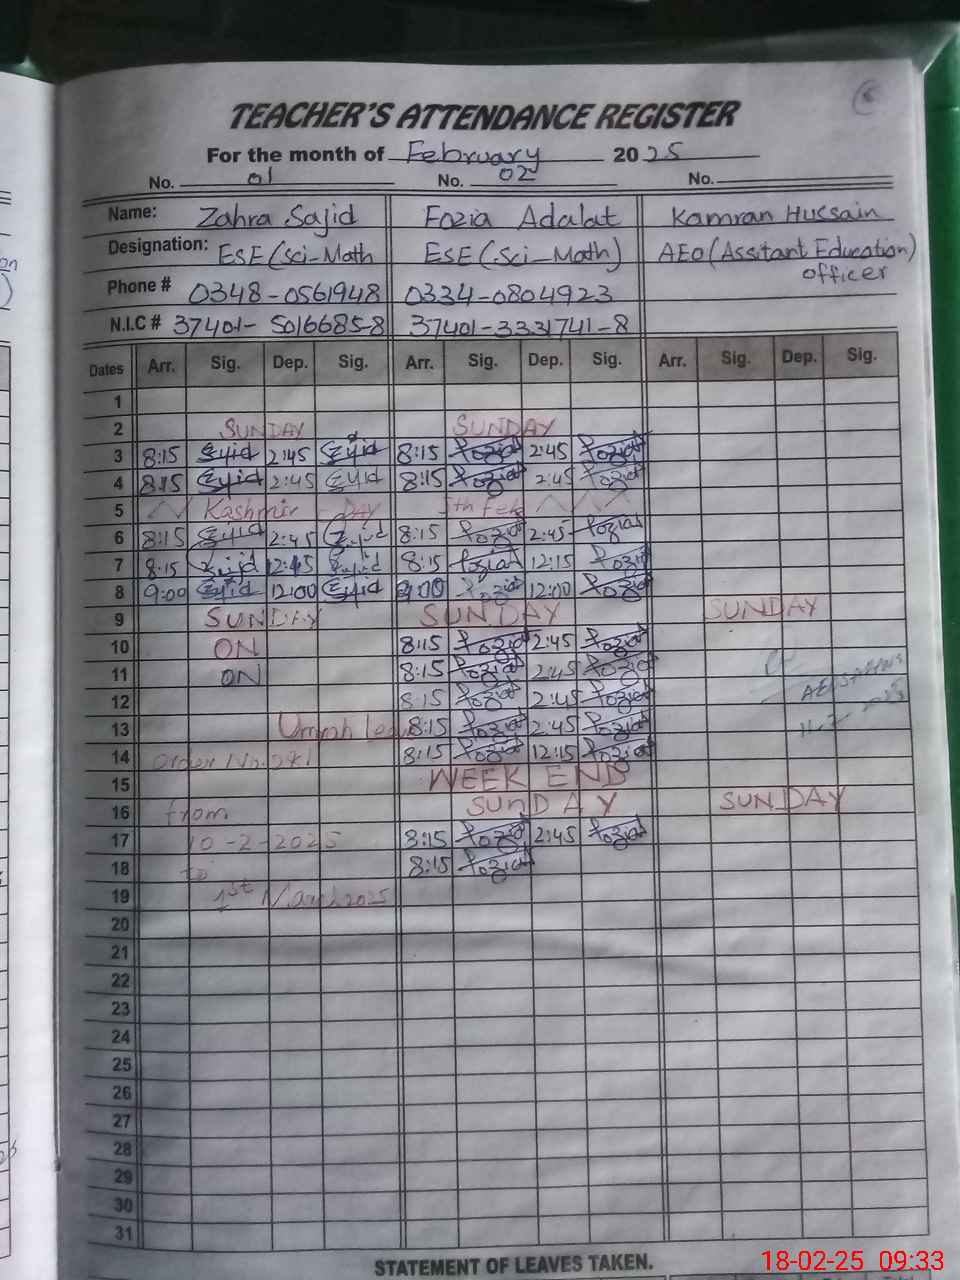 6
TEACHER'S ATTENDANCE REGISTER
For the month of February 2025
No. 01 No. 02 No.
Name: Zahra Sajid Fozia Adalat Kamran Hussain
Designation: ESE (Sci-Math ESE (Sci-Math) AEO (Assitant Education) officer
Phone # 0348-0561948 0334-0804923
N.I.C # 37401-5016685-8 37401-3331741-8
Dates Arr. Sig. Dep. Sig. Arr. Sig. Dep. Sig. Arr. Sig. Dep. Sig.
1
2 SUNDAY SUNDAY
3 8:15 2:45 8:15 Fozia 2:45 Fozia
4 8:15 2:45 8:15 Fozia 2:45 Fozia
5 Kashmir DAY 5th Feb
6 8:15 2:45 8:15 Fozia 2:45 Fozia
7 8:15 12:45 8:15 Fozia 12:15 Fozia
8 9:00 12:00 9:00 Fozia 12:00 Fozia
9 SUNDAY SUNDAY SUNDAY
10 ON 8:15 Fozia 2:45 Fozia
11 ON 8:15 Fozia 2:45 Fozia
12 8:15 Fozia 2:45 Fozia
13 Umrah 8:15 Fozia 2:45 Fozia
14 Order No. 8:15 Fozia 12:15 Fozia
15 WEEK END
16 from SUNDAY SUNDAY
17 10-2-2025 8:15 Fozia 2:45 Fozia
18 to 8:15 Fozia
19 1st March 2025
20
21
22
23
24
25
26
27
28
29
30
31
STATEMENT OF LEAVES TAKEN.
18-02-25 09:33